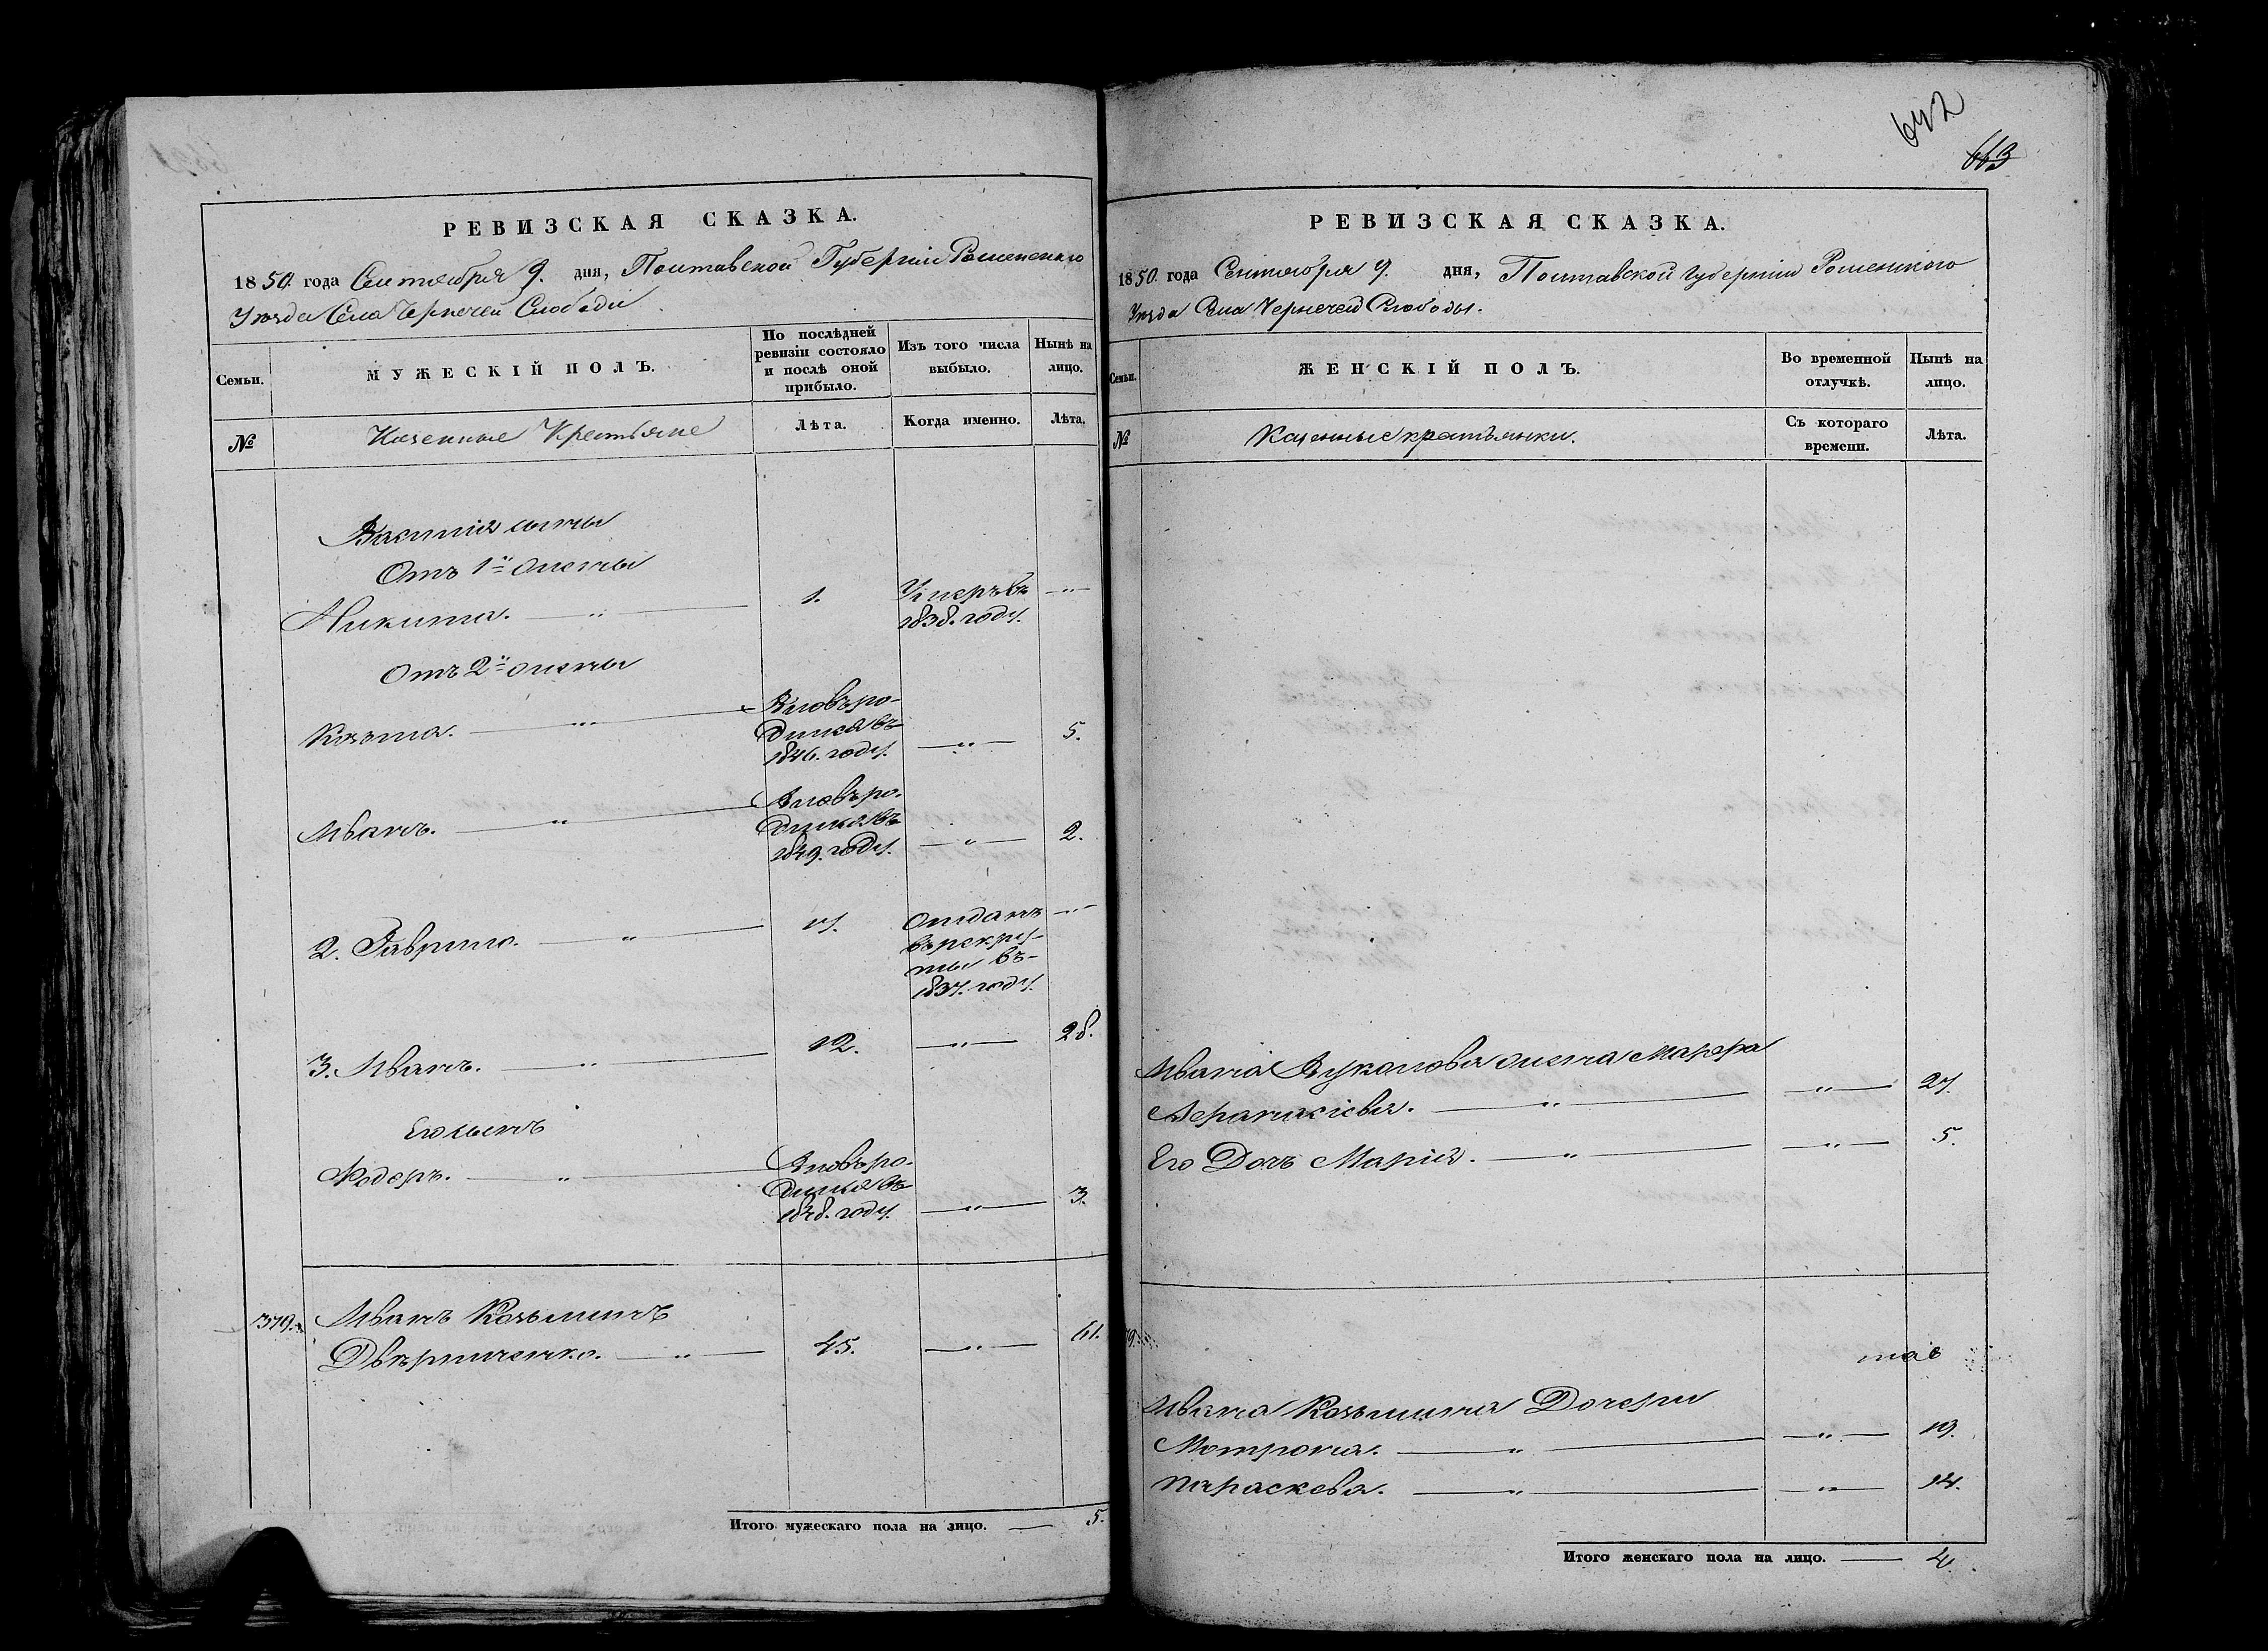 642
663
РЕВИЗСКАЯ СКАЗКА.
1850 года Сентября 9. дня, Полтавской Губернии Роменскаго
Уезда Села Чернечей Слободы
Семьи.
МУЖЕСКІЙ ПОЛЪ.
По послѣдней ревизіи состояло и послѣ оной прибыло.
Изъ того числа выбыло.
Нынѣ на лицо.
№
Казенные Крестьяне
Лѣта.
Когда именно.
Лѣта.
Василия сыны
Отъ 1й жены
Никита. — " — 1. Умеръ въ 1838. году. — " —
Отъ 2й жены
Козьма. — " — Вновь родился въ 1846. году. — " — 5.
Иванъ. — " — Вновь родился въ 1849. году. — " — 2.
2. Гаврило. — " — Отданъ въ рекруты въ 1837. году. — " —
3. Иванъ. — " — 12. — " — 28.
Его сынъ
Федоръ. — " — Вновь родился въ 1848. году. — " — 3.
379. Иванъ Козьминъ
— " — 45. — " — 61.
Итого мужескаго пола на лицо. — 5.
РЕВИЗСКАЯ СКАЗКА.
1850. года Сентября 9. дня, Полтавской Губернии Роменского
Уезда Села Чернечей Слободы.
Семьи.
ЖЕНСКІЙ ПОЛЪ.
Во временной отлучкѣ.
Нынѣ на лицо.
№
Казенные крестьянки.
Съ котораго времени.
Лѣта.
Ивана Вуколова жена Марфа
— " — — " — 27.
Его Дочь Мария. — " — — " — 5.
Ивана Козьмина Дочери
Мотрона. — " — — " — 19.
Параскева. — " — — " — 14.
Итого женскаго пола на лицо. — 4.